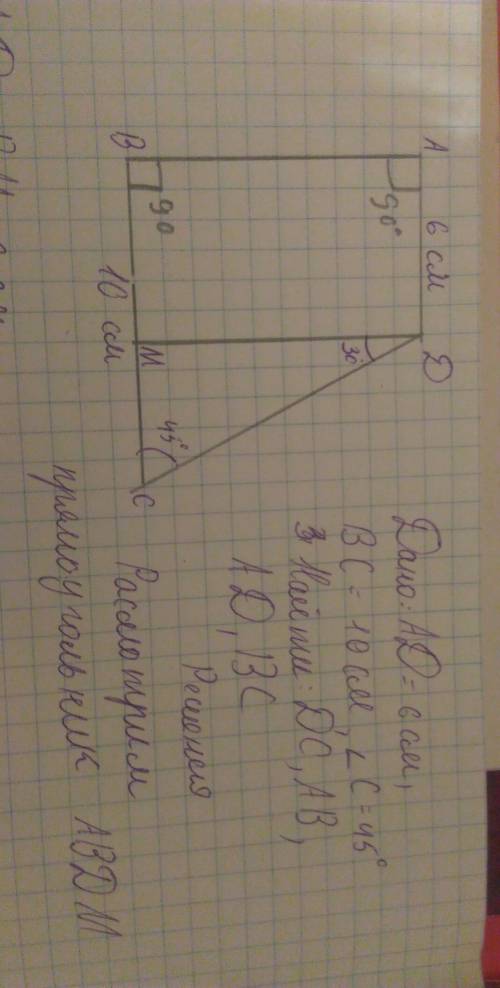 A 6 см D
90°
30°
B 10 см M C
90
45°
Дано: AD = 6 см,
BC = 10 см, ∠C = 45°
Найти: DC, AB,
AD, BC
Решения
Расмотрим
прямоугольник ABDM